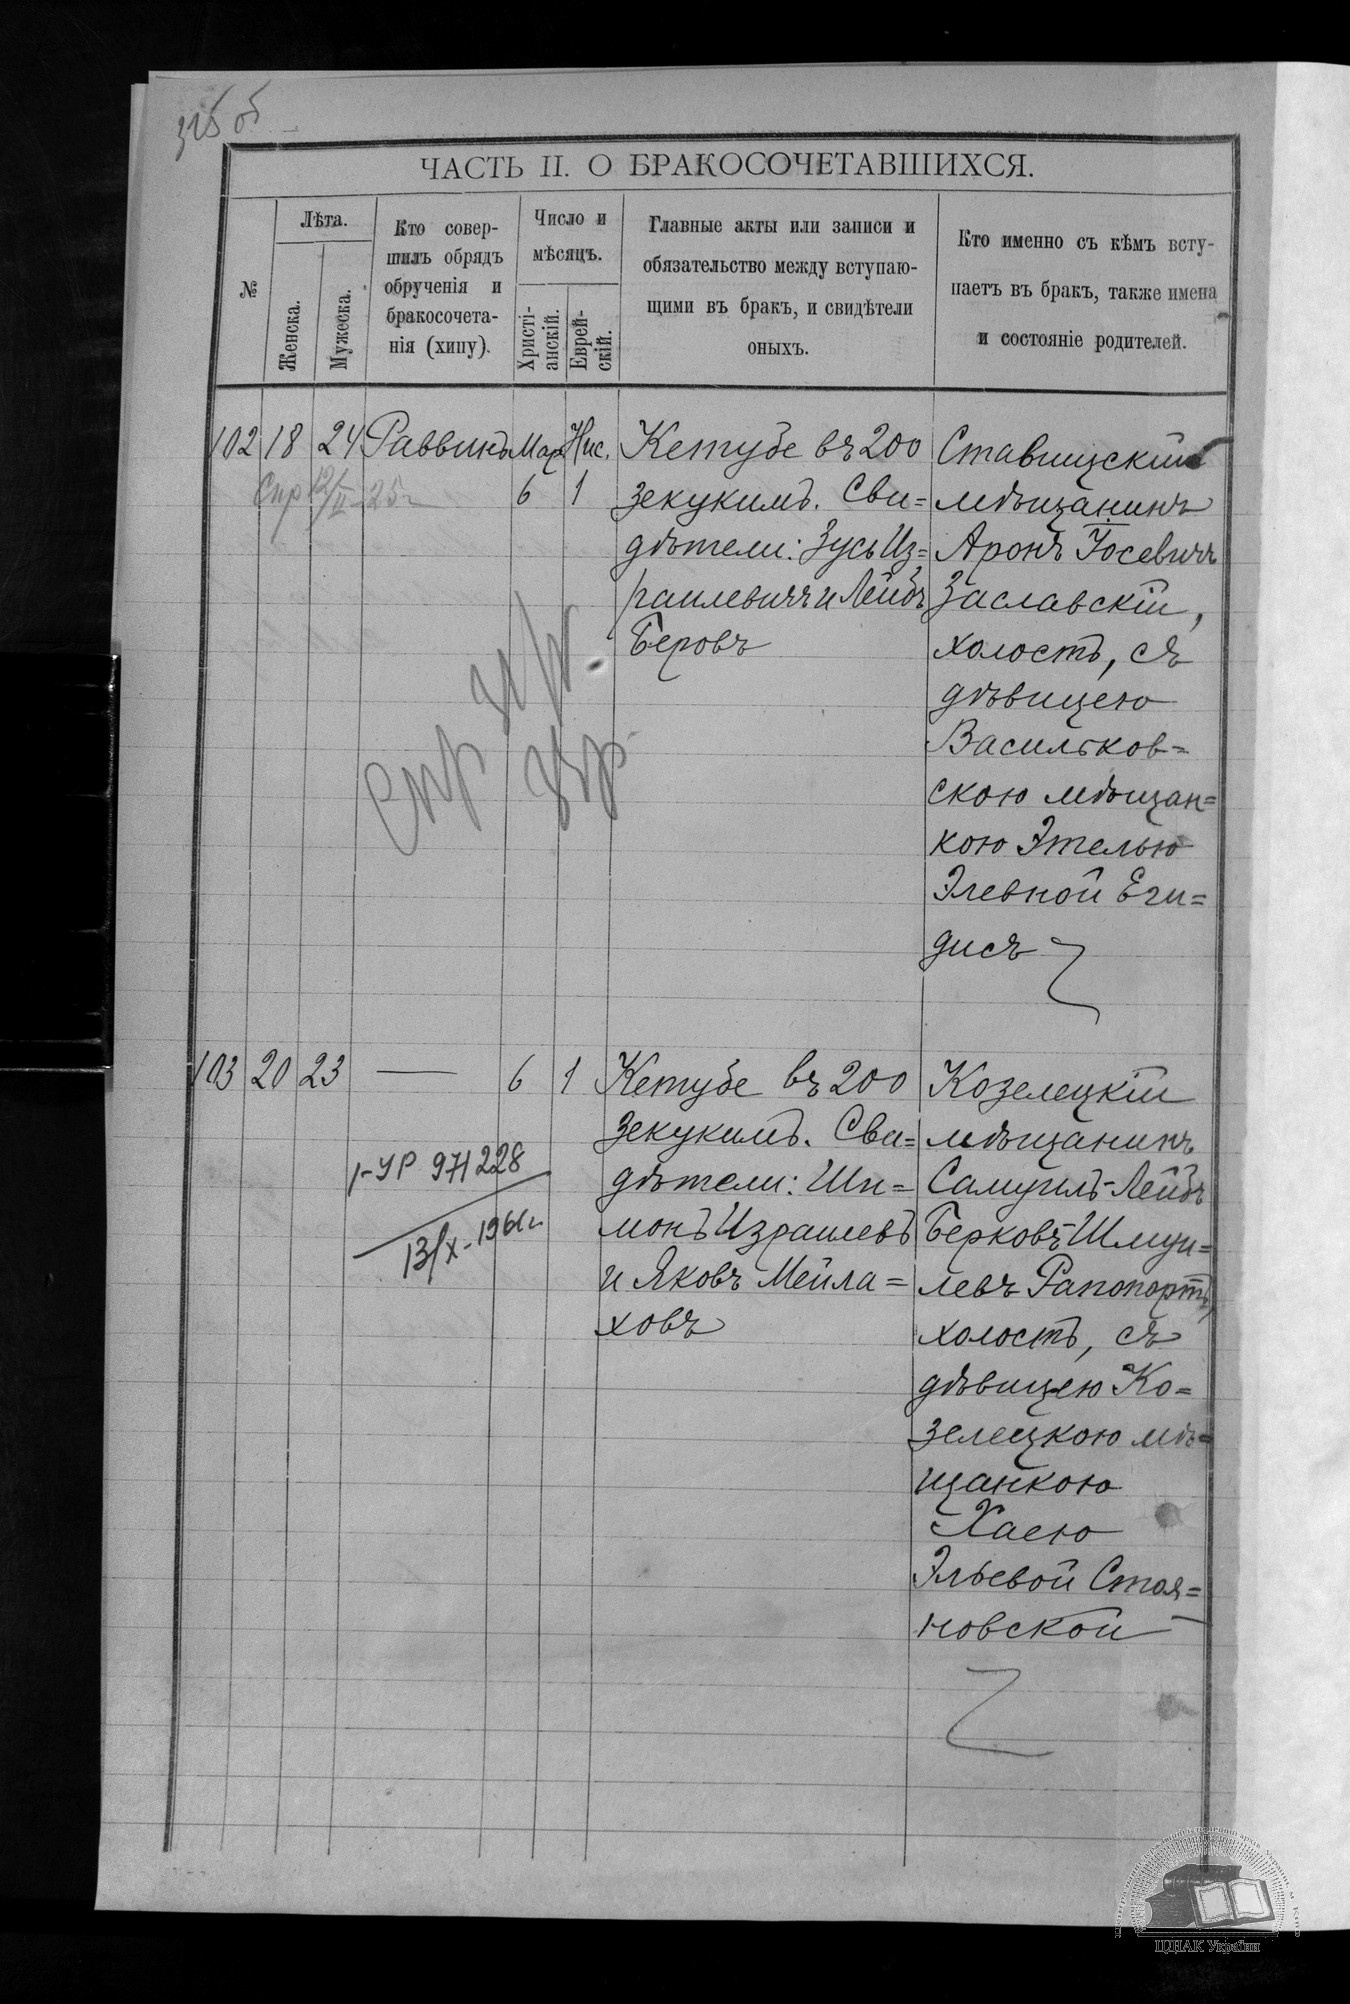 325 об
ЧАСТЬ II. О БРАКОСОЧЕТАВШИХСЯ.
№
Лѣта.
Женска.
Мужеска.
Кто совер-
шилъ обрядъ
обрученія и
бракосочета-
нія (хипу).
Число и
мѣсяцъ.
Христі-
анскій.
Еврей-
скій.
Главные акты или записи и
обязательство между вступаю-
щими въ бракъ, и свидѣтели
оныхъ.
Кто именно съ кѣмъ всту-
паетъ въ бракъ, также имена
и состояніе родителей.
102 18 24 Раввинъ Мар. Нис.
6 1
Спр 12/II-25г
Кетубе въ 200
зекукимъ. Сви=
дѣтели: Зусь Из=
раилевичъ и Лейбъ
Беровъ
Ставищскій
мѣщанинъ
Аронъ Іосевичъ
Заславскій,
холостъ, съ
дѣвицею
Васильков=
скою мѣщан=
кою Этелью
Элевной Еги=
дисъ
103 20 23 — 6 1
1-УР 971228
13/X-1961г
Кетубе въ 200
зекукимъ. Сви=
дѣтели: Ши=
монъ Израилевъ
и Яковъ Мейла=
ховъ
Козелецкій
мѣщанинъ
Самуилъ-Лейбъ
Берковъ-Шмуи=
левъ Рапопортъ,
холостъ, съ
дѣвицею Ко=
зелецкою мѣ=
щанкою
Хаею
Эльевой Стоя=
новской
ЦДІАК України